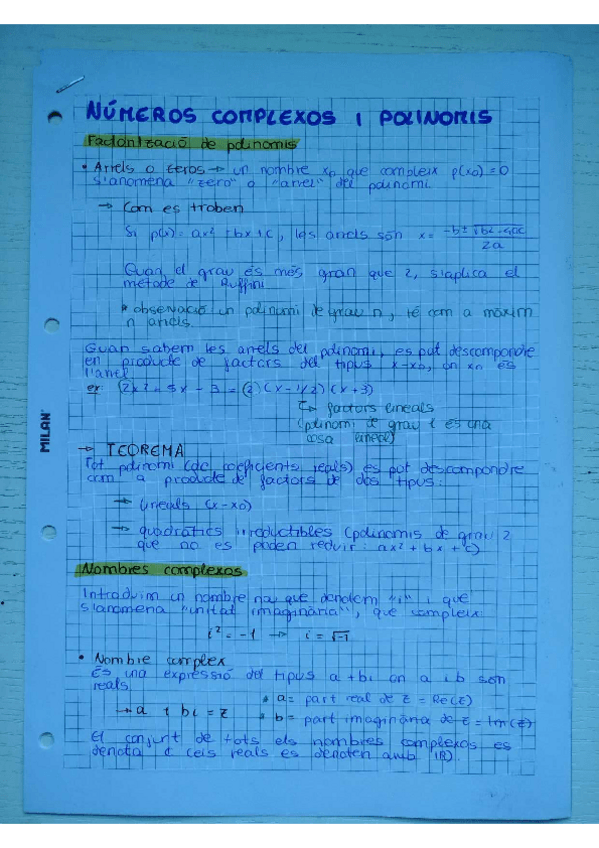 NÚMEROS COMPLEXOS I POLINOMIS
Factorització de polinomis
• Arrels o zeros → un nombre x0 que compleix p(x0)=0
s'anomena "zero" o "arrel" del polinomi.
→ Com es troben
Si p(x)= ax² + bx + c, les arrels són x = -b ± √b² - 4ac
2a
Quan el grau és més gran que 2, s'aplica el
mètode de Ruffini.
* observació un polinomi de grau n, té com a màxim
n arrels.
Quan sabem les arrels del polinomi, es pot descompondre
en producte de factors del tipus x-x0, on x0 és
l'arrel
ex: (2x² + 5x - 3 = (2)(x-1/2)(x+3)
↳ factors lineals
(polinomi de grau 1 és una
cosa lineal)
MILAN
→ TEOREMA
Tot polinomi (de coeficients reals) es pot descompondre
com a producte de factors de dos tipus:
→ lineals (x-x0)
→ quadràtics irreductibles (polinomis de grau 2
que no es poden reduir: ax² + bx + c)
Nombres complexos
Introduïm un nombre nou que denotem "i" i que
s'anomena "unitat imaginària", que compleix:
i² = -1 → i = √-1
• Nombre complex
És una expressió del tipus a + bi on a i b són
reals
* a = part real de z = Re(z)
→ a + bi = z
* b = part imaginària de z = Im(z)
El conjunt de tots els nombres complexos es
denota ℂ (els reals es denoten amb ℝ).